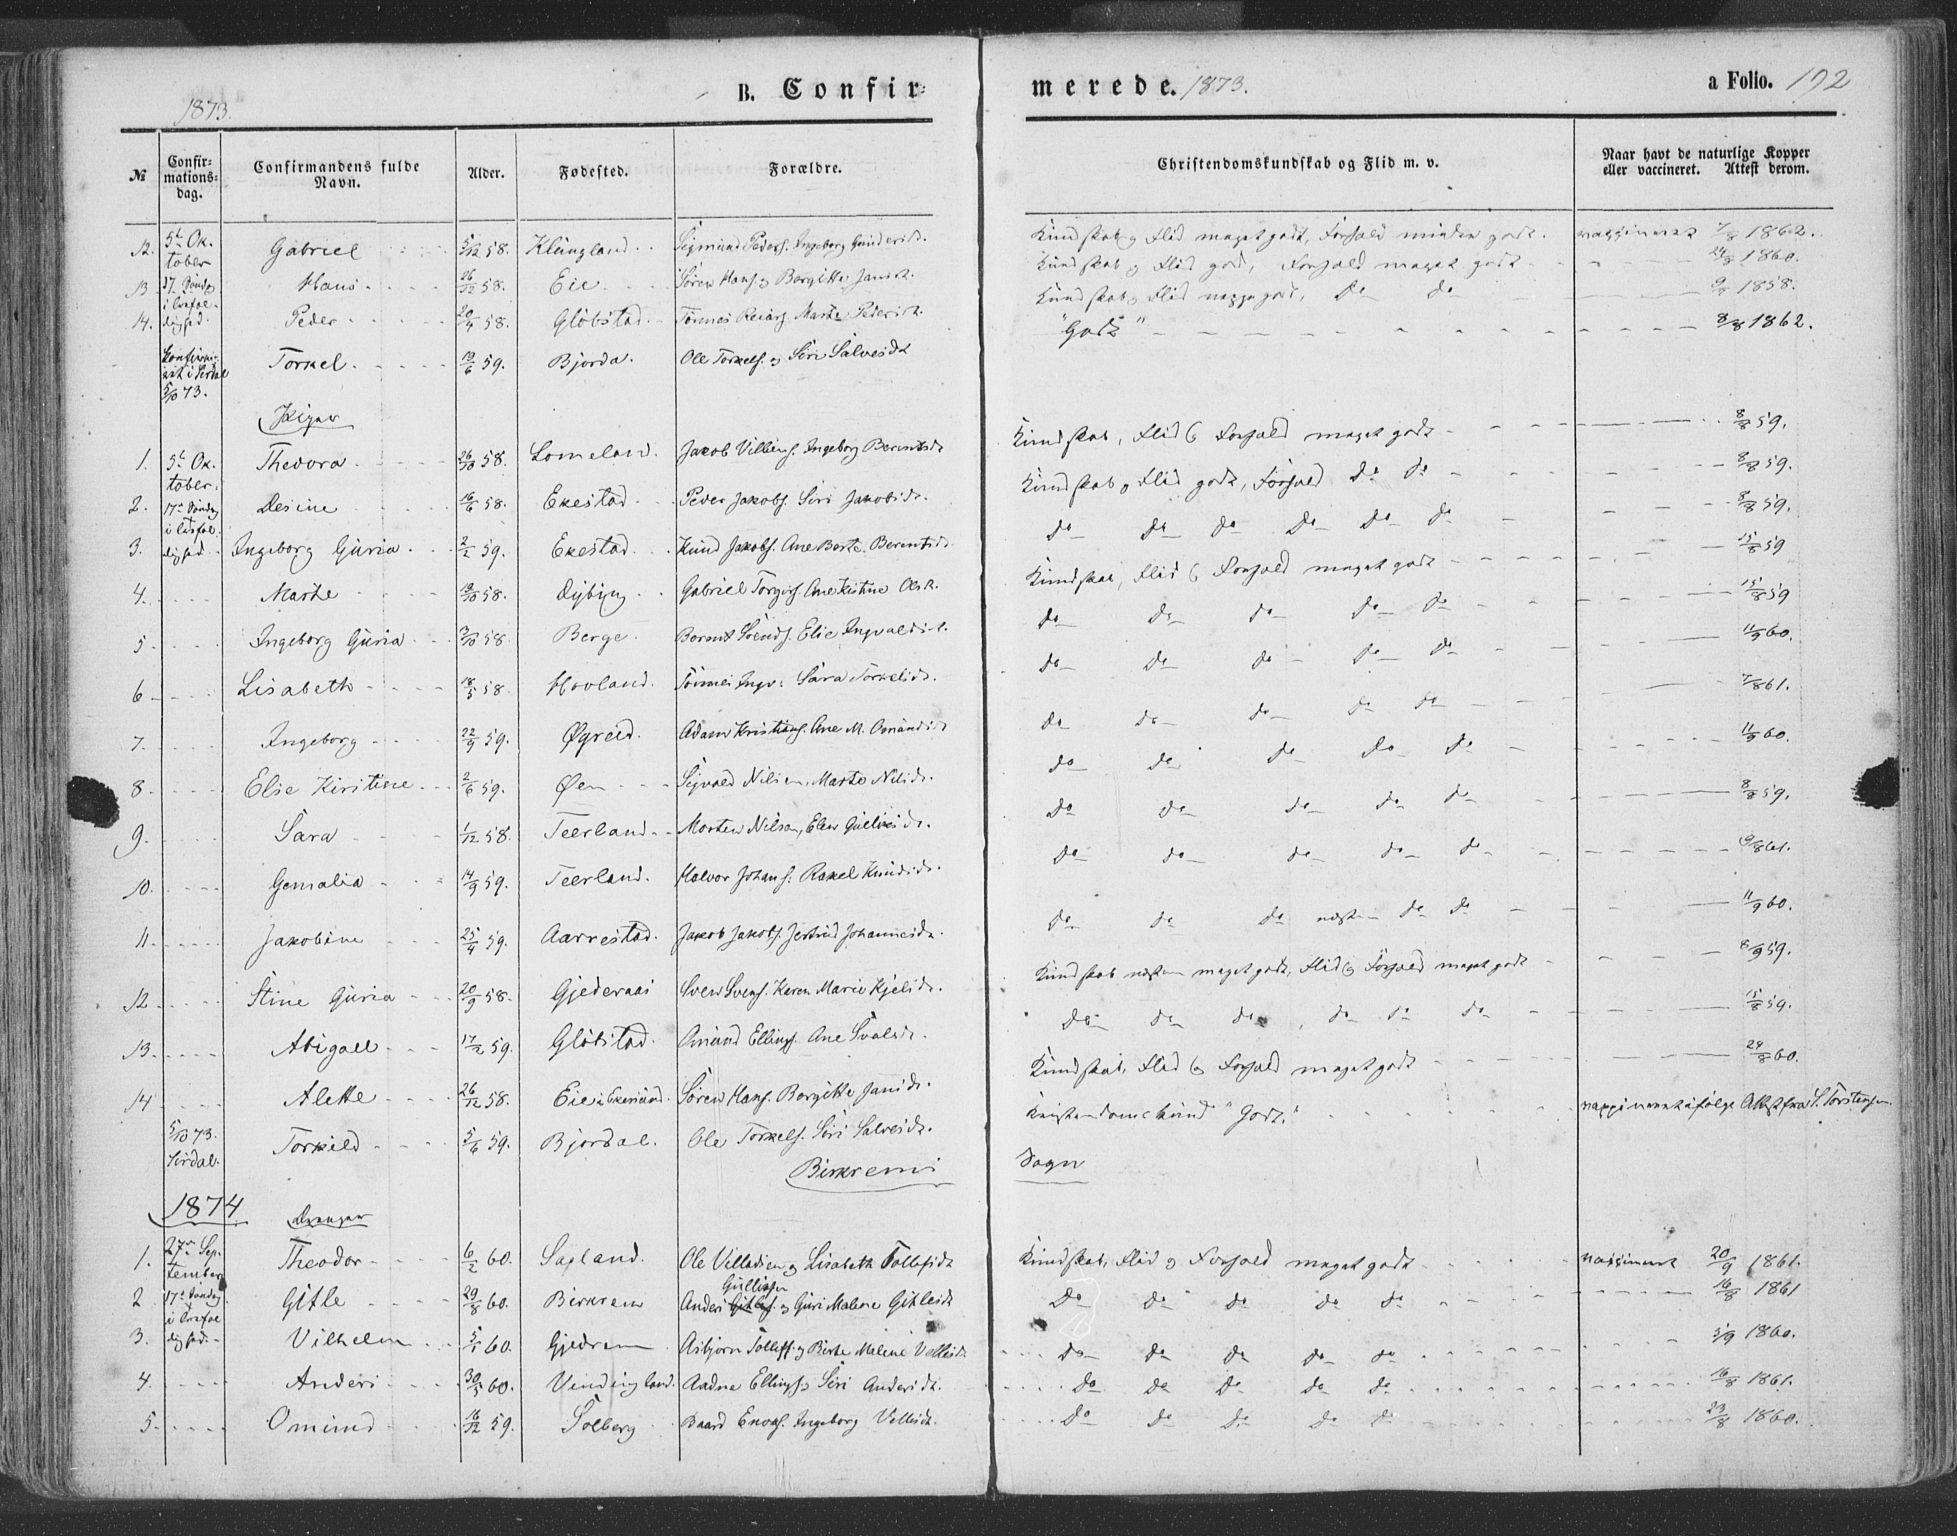 B. Confir-
merede. 1873.
a Folio. 192
1873.
№ Confir-mations-dag. Confirmandens fulde Navn. Alder. Fødested. Forældre. Christendomskundskab og Flid m. v. Naar havt de naturlige Kopper eller vaccineret. Attest derom.
12. 5t Ok-tober Gabriel 5/12 58. Klungland Sigmund Peders. Ingeborg Kundskab og Flid meget godt, Forhold mindre godt. vaccineret 7/8 1862.
13 17 Søndag Hans 26/12 58. Eie Søren Hans. og Borgitte Janisd. Kundskab og Flid god, Forhold meget godt 24/8 1860.
14. Peder 20/4 58. Gløbstad Tønnes Marthe Pedersd. Kundskab og Flid Do Do 1858.
Torkel 19/6 59. Bjorda. Ole Torkels. og Siri Salvesdt "Godt" 8/8 1862.
5/10 73.
Piger
1. 5t Ok-tober. Thedora 26/10 58. Lomeland. Jakob Villums. Ingeborg Berentsdt Kundskab, Flid & Forhold meget godt 8/8 59.
2. 17de Søndag Desine 16/6 58. Ekestad Peder Jakobs. Siri Jakobsdt. Kundskab og Flid godt, Forhold Do Do 8/8 59.
3. Ingeborg Guria 2/2 59. Ekestad Knud Jakobs. Ane Berte Berentsdt Do Do Do Do Do Do 8/8 59.
4. Marthe 19/10 58. Dybing Gabriel Torgers. Ane Kistine Olsdt. Kundskab, Flid & Forhold meget godt 15/8 59
5 Ingeborg Guria 58 Berge. Berent Svends. Elie Ingvaldsdt. Do Do Do Do Do 15/8 59
6 Lisabeth 18/5 58 Hovland. Tønnes Ingv. Sara Torkelsdt. Do Do Do Do Do 11/9 60.
7. Ingeborg 22/9 59. Øgreid. Adam Kristians. Ane M. Omundsdt Do Do Do Do Do 7/8 61.
8 Elie Kiristine 2/6 59. Øen Sigvald Nilsen, Marte Nilsdt. Do Do Do Do Do 11/9 60.
9. Sara 1/12 58. Teerland Morten Nilson, Elen Do Do Do Do Do 8/8 59.
10. Gemalia 14/9 59. Teerland. Halvor Johans. Rakel Knudsdt. Do Do Do Do Do 61.
11. Jakobine 25/4 59. Aarrestad. Jakob Jakobs. Jertrud Johannesdt. Do Do Do næsten Do Do 11/9 60.
12 Stine Guria 20/9 58. Gjederaas Sven Svens. Karen Marie Kjelsdt. Kundskab næsten meget godt, Flid & Forhold meget godt 8/9 59.
13. Abigael 17/2 59. Gløbstad. Omund Ellings. Ane Do Do Do, Do Do Do 15/8 59.
14 Alette 26/12 58. Eie i Ekersund. Søren Hans. Borgitte Janisdt. Kundskab, Flid & Forhold meget godt 24/8 60.
5/10 73. Sirdal. Torkild 5/6 59. Bjordal. Ole Torkels. Siri Salvesdt. Kristendomskund "Godt." vaccineret ifølge Attest fra S. Torstensen.
Birkrems Sogn
1874
Drenger
1. 27de Sep-tember Theodor 6/2 60. Sagland. Ole Velladsen og Lisabeth Tollefsdt Kundskab, Flid & Forhold meget godt vaccineret 20/9 1861.
Gulliksen
2 17de Søndag Gitle 29/8 60. Birkrem Anders Gitles. og Guri Malene Gitlesdt Do Do Do Do Do 16/8 1861
3. Vilhelm 5/1 60. Gjedrem Asbjørn Tollefs. og Berte Malene Do Do Do Do Do 5/9 1860.
4. Anders 30/5 60. Vindingland. Aadne Ellings. og Siri Andersdt. Do Do Do Do Do 16/8 1861.
5. Omund 16/12 59. Solberg Baard Enoks. Ingeborg Do Do Do Do Do 23/8 1860.